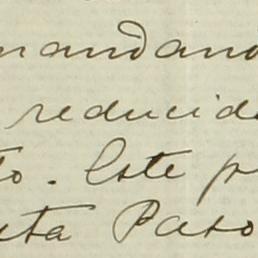 mandano
reducid
to. Este p
uta Paso